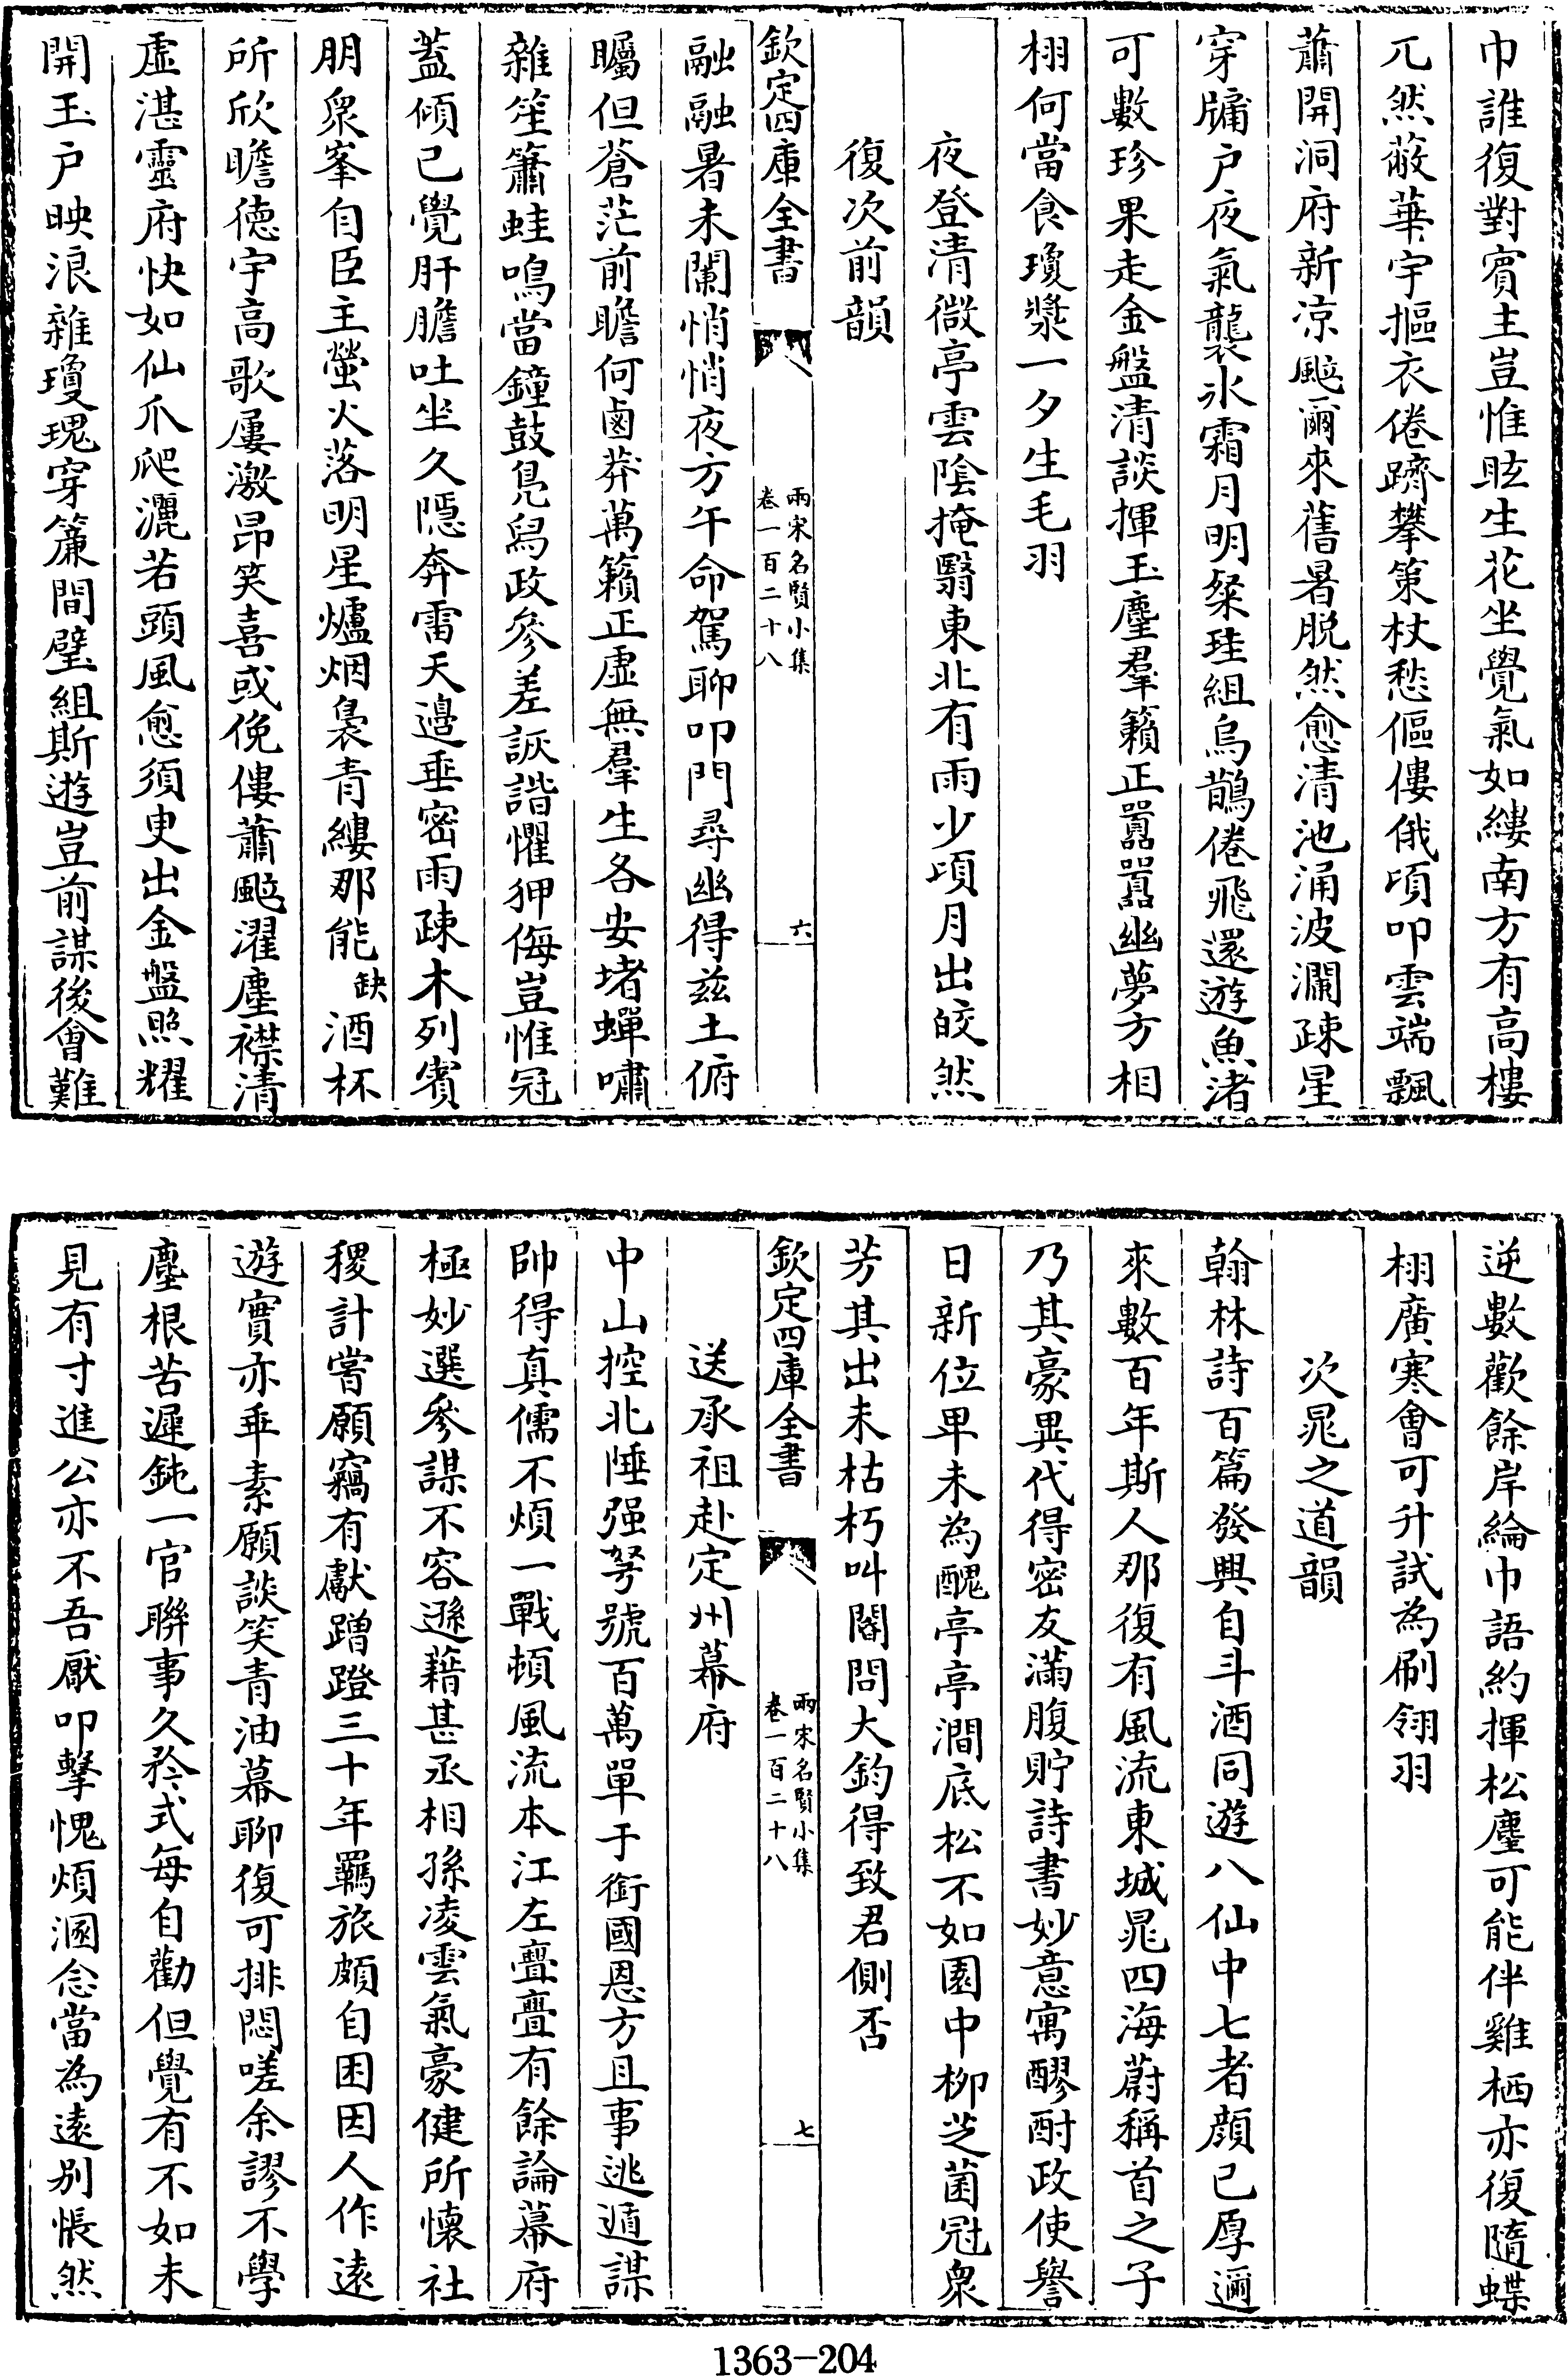 巾誰復對賓主豈惟眩生花坐覺氣如縷南方有高樓
兀然蔽華宇摳衣倦躋攀策杖愁傴僂俄頃叩雲端飄
蕭開洞府新涼颭爾來舊暑脱然愈清池涌波瀾疎星
穿牖户夜氣襲氷霜月明粲珪組烏鵲倦飛還遊魚渚
可數珍果走金盤清談揮玉麈羣籟正嚚嚚幽夢方相
栩何當食瓊漿一夕生毛羽
夜登清微亭雲陰掩翳東北有雨少頃月出皎然
復次前韻
欽定四庫全書
兩宋名賢小集
卷一百二十八
六
融融暑未闌悄悄夜方午命駕聊叩門尋幽得兹土俯
矚但蒼茫前瞻何鹵莽萬籟正虚無羣生各安堵蟬嘯
雜笙簫蛙鳴當鐘鼓鳧舄政參差詼諧懼狎侮豈惟冠
蓋傾已覺肝膽吐坐久隱奔雷天邉垂密雨疎木列賓
朋衆峯自臣主螢火落明星爐烟裊青縷那能缺酒杯
所欣瞻德宇高歌屢激昂笑喜或俛僂蕭颭濯塵襟清
虚湛靈府快如仙爪爬灑若頭風愈須臾出金盤照耀
開玉户映浪雜瓊瑰穿簾間璧組斯遊豈前謀後會難
逆數歡餘岸綸巾語約揮松麈可能伴雞栖亦復隨蝶
栩廣寒會可升試為刷翎羽
次晁之道韻
翰林詩百篇發興自斗酒同遊八仙中七者顔已厚邇
來數百年斯人那復有風流東城晁四海蔚稱首之子
乃其豪異代得密友滿腹貯詩書妙意寓醪酎政使譽
日新位卑未為醜亭亭澗底松不如園中柳芝菌冠衆
芳其出未枯朽叫閽問大鈞得致君側否
欽定四庫全書
兩宋名賢小集
卷一百二十八
七
送承祖赴定州幕府
中山控北陲强弩號百萬單于銜國恩方且事逃遁謀
帥得真儒不煩一戰頓風流本江左亹亹有餘論幕府
極妙選參謀不容遜藉甚丞相孫凌雲氣豪健所懷社
稷計嘗願竊有獻蹭蹬三十年羈旅頗自困因人作逺
遊實亦乖素願談笑青油幕聊復可排悶嗟余謬不學
塵根苦遲鈍一官聯事久矜式每自勸但覺有不如未
見有寸進公亦不吾厭叩擊愧煩溷念當為逺别悵然
1363-204